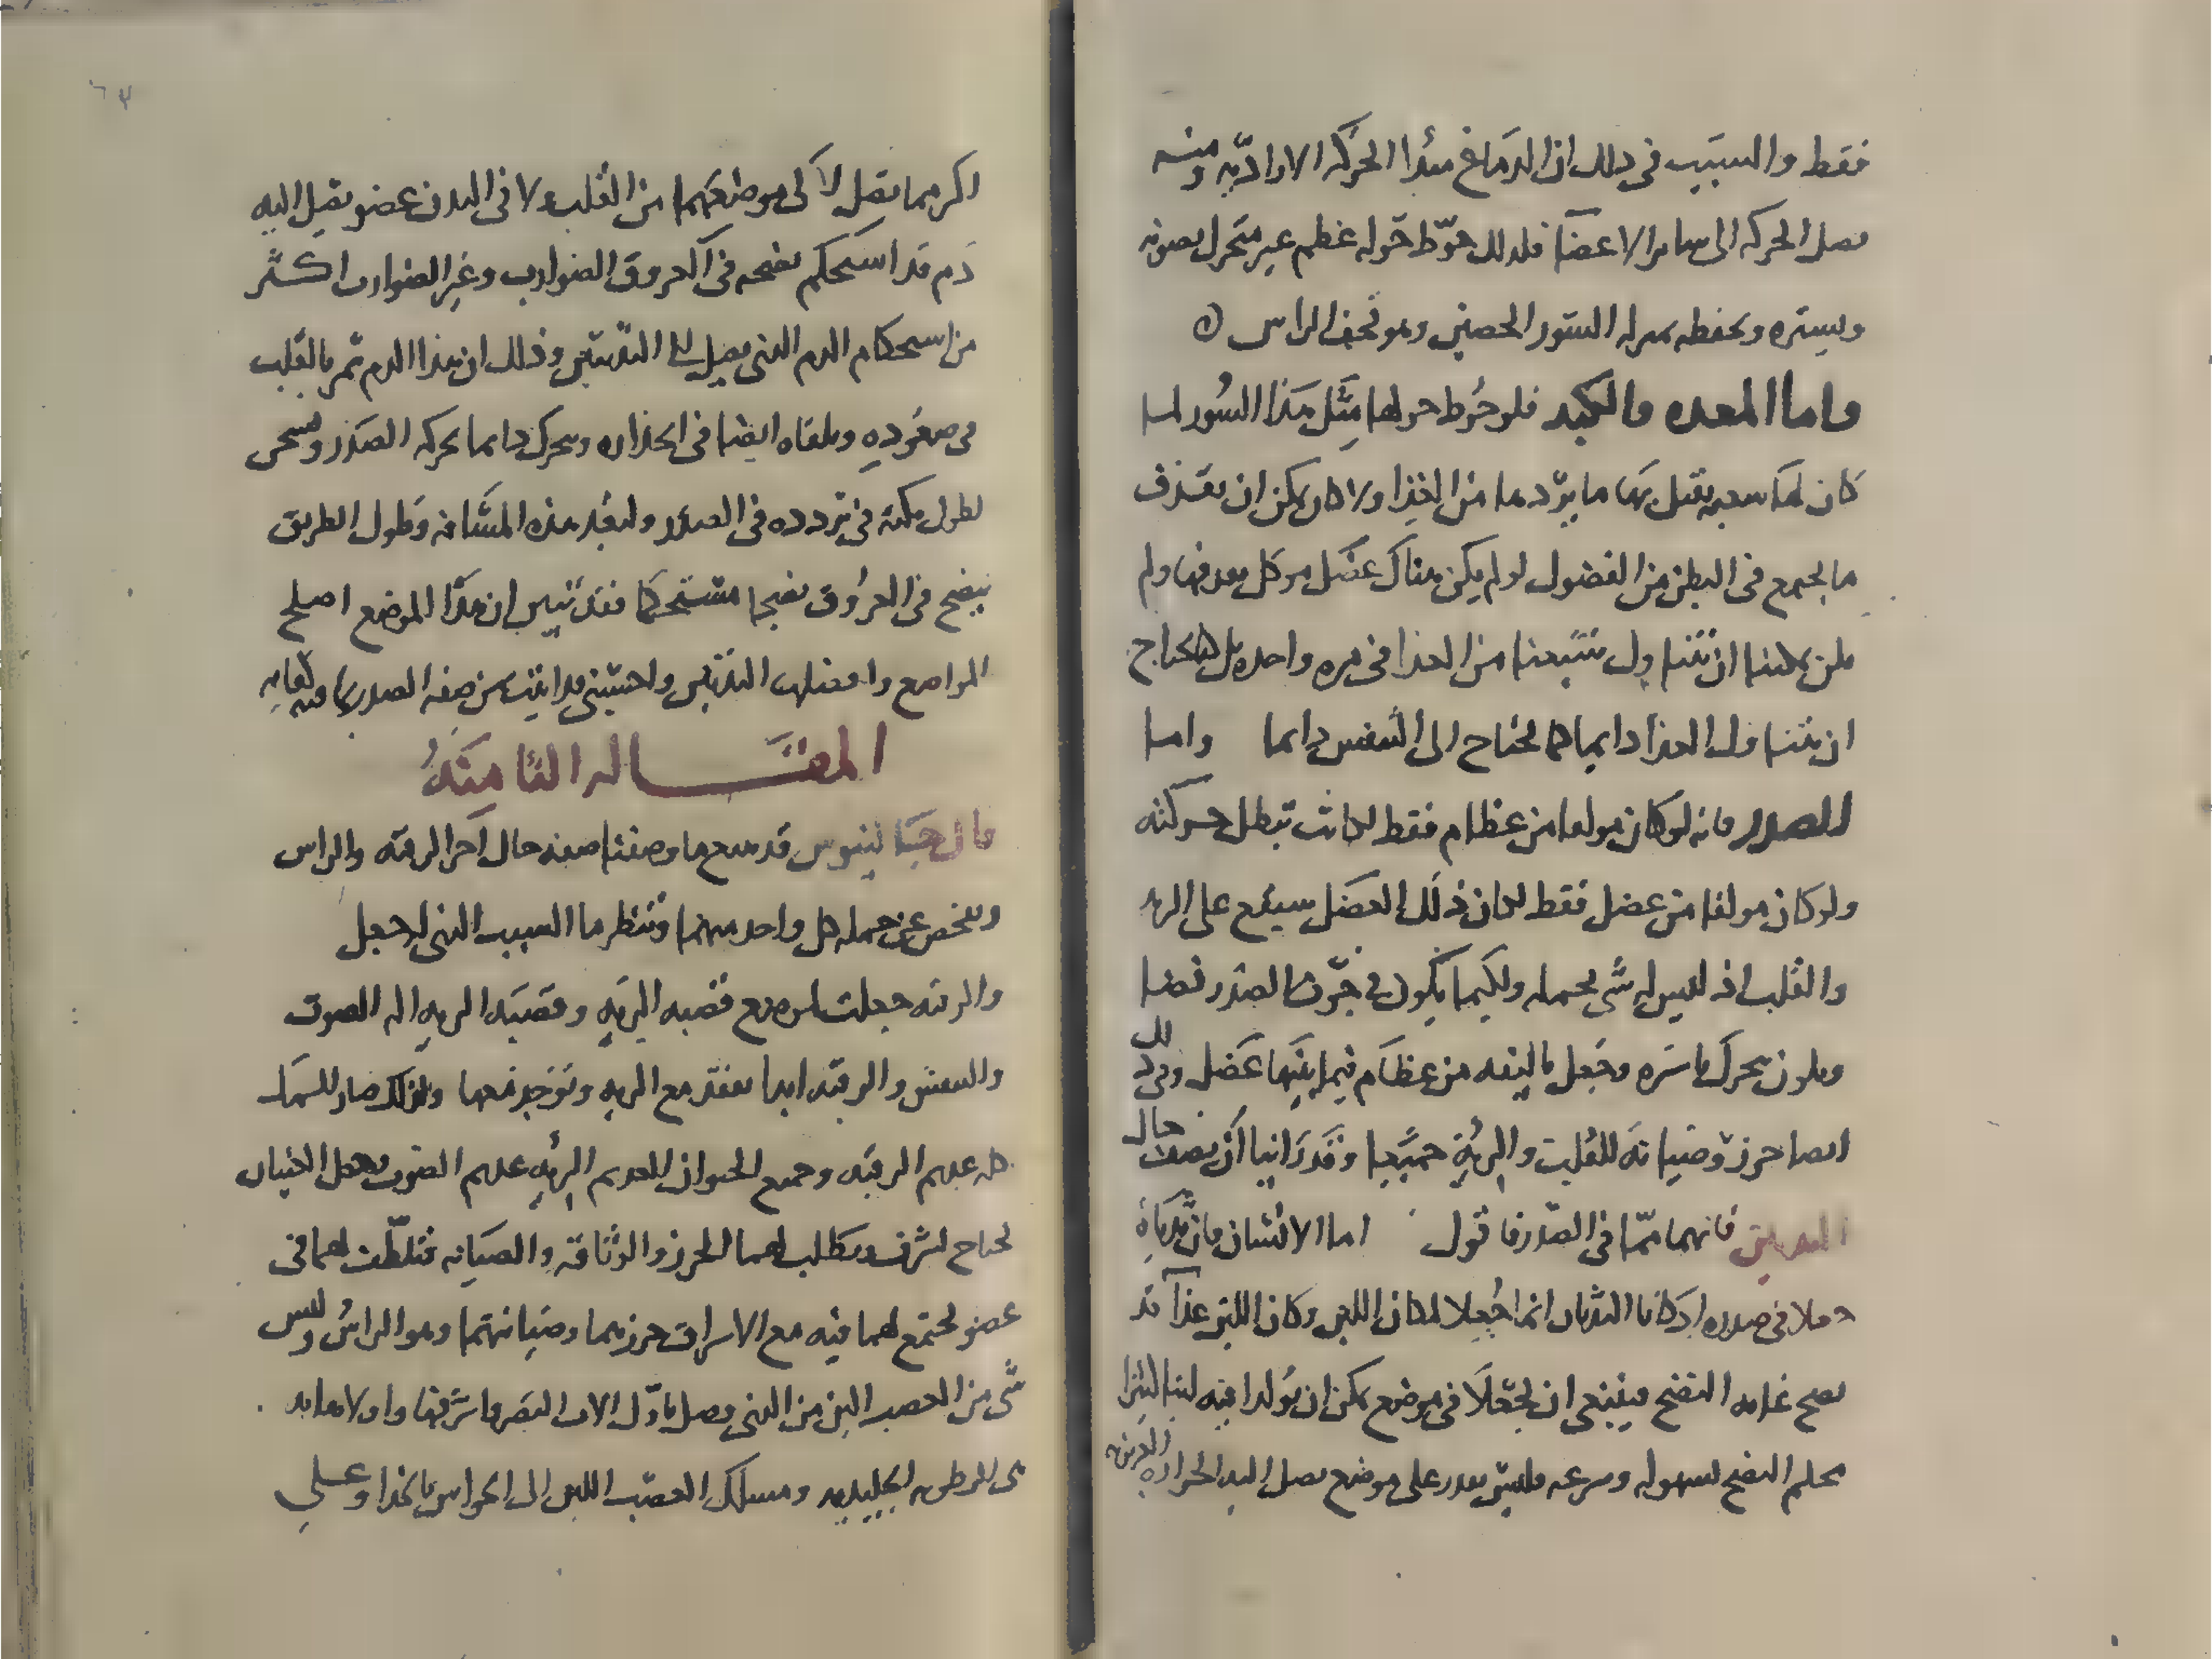 فقط والسبب في ذلك ان الدماغ مبدا الحركه الاراديه ومنه
يصل الحركه الى سائر الاعضا فلذلك حوط حوله عظم غير متحرك يصونه
ويستره ويحفظه بمنزله الستور الحصين وهو قحف الراس
واما المعده والكبد فلو حوط حولها مثل هذا السور لما
كان لها سعه يقبل بها ما يرد ها من الغذا ولا كان يمكن ان يقذف
ما يجتمع في البطن من الفضول لو لم يكن هناك عضل موكل بدفعها ولم
يكن يمكننا ان نتناول شبعنا من الغذا في مره واحده بل كنا نحتاج
ان نتناول الغذا دايما كما نحتاج الى التنفس دايما واما
الصدر فانه لو كان مولفا من عظام فقط لكانت تبطل حركته
ولو كان مولفا من عضل فقط لكان ذلك العضل سيقع على الريه
والقلب اذ ليس له شي يحمله ولكيما يكون في جوف الصدر فضا
ويكون يتحرك باسره وجعل تاليفه من عظام فيما بينها عضل وفي ذلك
ايضا حرز وصيانه للقلب والريه جميعا وقد راينا ان نصف حال
الثديين فانهما مما في الصدر فاقول اما الانسان فان ثدياه
جعلا في صدره اذ كانا الثديان انما جعلا لمكان اللبن وكان اللبن غذا قد
نضج غايه النضج فينبغي ان يجعلا في موضع يمكن ان يولدا فيه لبنا كثيرا
محكم النضج بسهوله وسرعه فليس يقدر على موضع يصل اليه الحراره الغريزيه
اكثر مما تصل الى موضعهما من القلب ولا في البدن عضو يقبل اليه
دم قد استحكم نضجه في العروق الضوارب وغير الضوارب اكثر
من استحكام الدم الذي يصل الى الثديين وذلك ان هذا الدم تمر بالقلب
في صعوده ويلقاه ايضا في انحداره ويتحرك دايما بحركه الصدر ويسخن
لطول مكثه في تردده في الصدر ولبعد هذه المسافه وطول الطريق
ينضج في العروق نضجا مستحكما فقد تبين ان هذا الموضع اصلح
المواضع وافضلها للثديين
المقاله الثامنه
قال جالينوس قد يتبع ما وصفنا صفه حال اجزا الرقبه والراس
ونفحص عن جمله كل واحد منهما وننظر ما السبب الذي له جعل
والرقبه جعلت لموضع قصبه الريه وقصبه الريه اله الصوت
والتنفس والرقبه ابدا تفقد مع الريه وتوجد معها ولذلك صار السمك
كله عديم الرقبه وجميع الحيوان العديم الريه عديم الصوت
عضو يجتمع لهما فيه مع الاشراف حرزهما وصيانتهما وهو الراس وليس
شي من العصب اللين من الذي يصل باول الات البصر واشرفها واولاها به